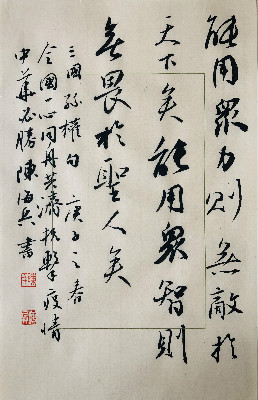 能用眾力則無敵於
天下矣能用眾智則
無畏於聖人矣
三國孫權句 庚子之春
全國一心同舟共濟抗擊疫情
中華必勝 陳海兵書